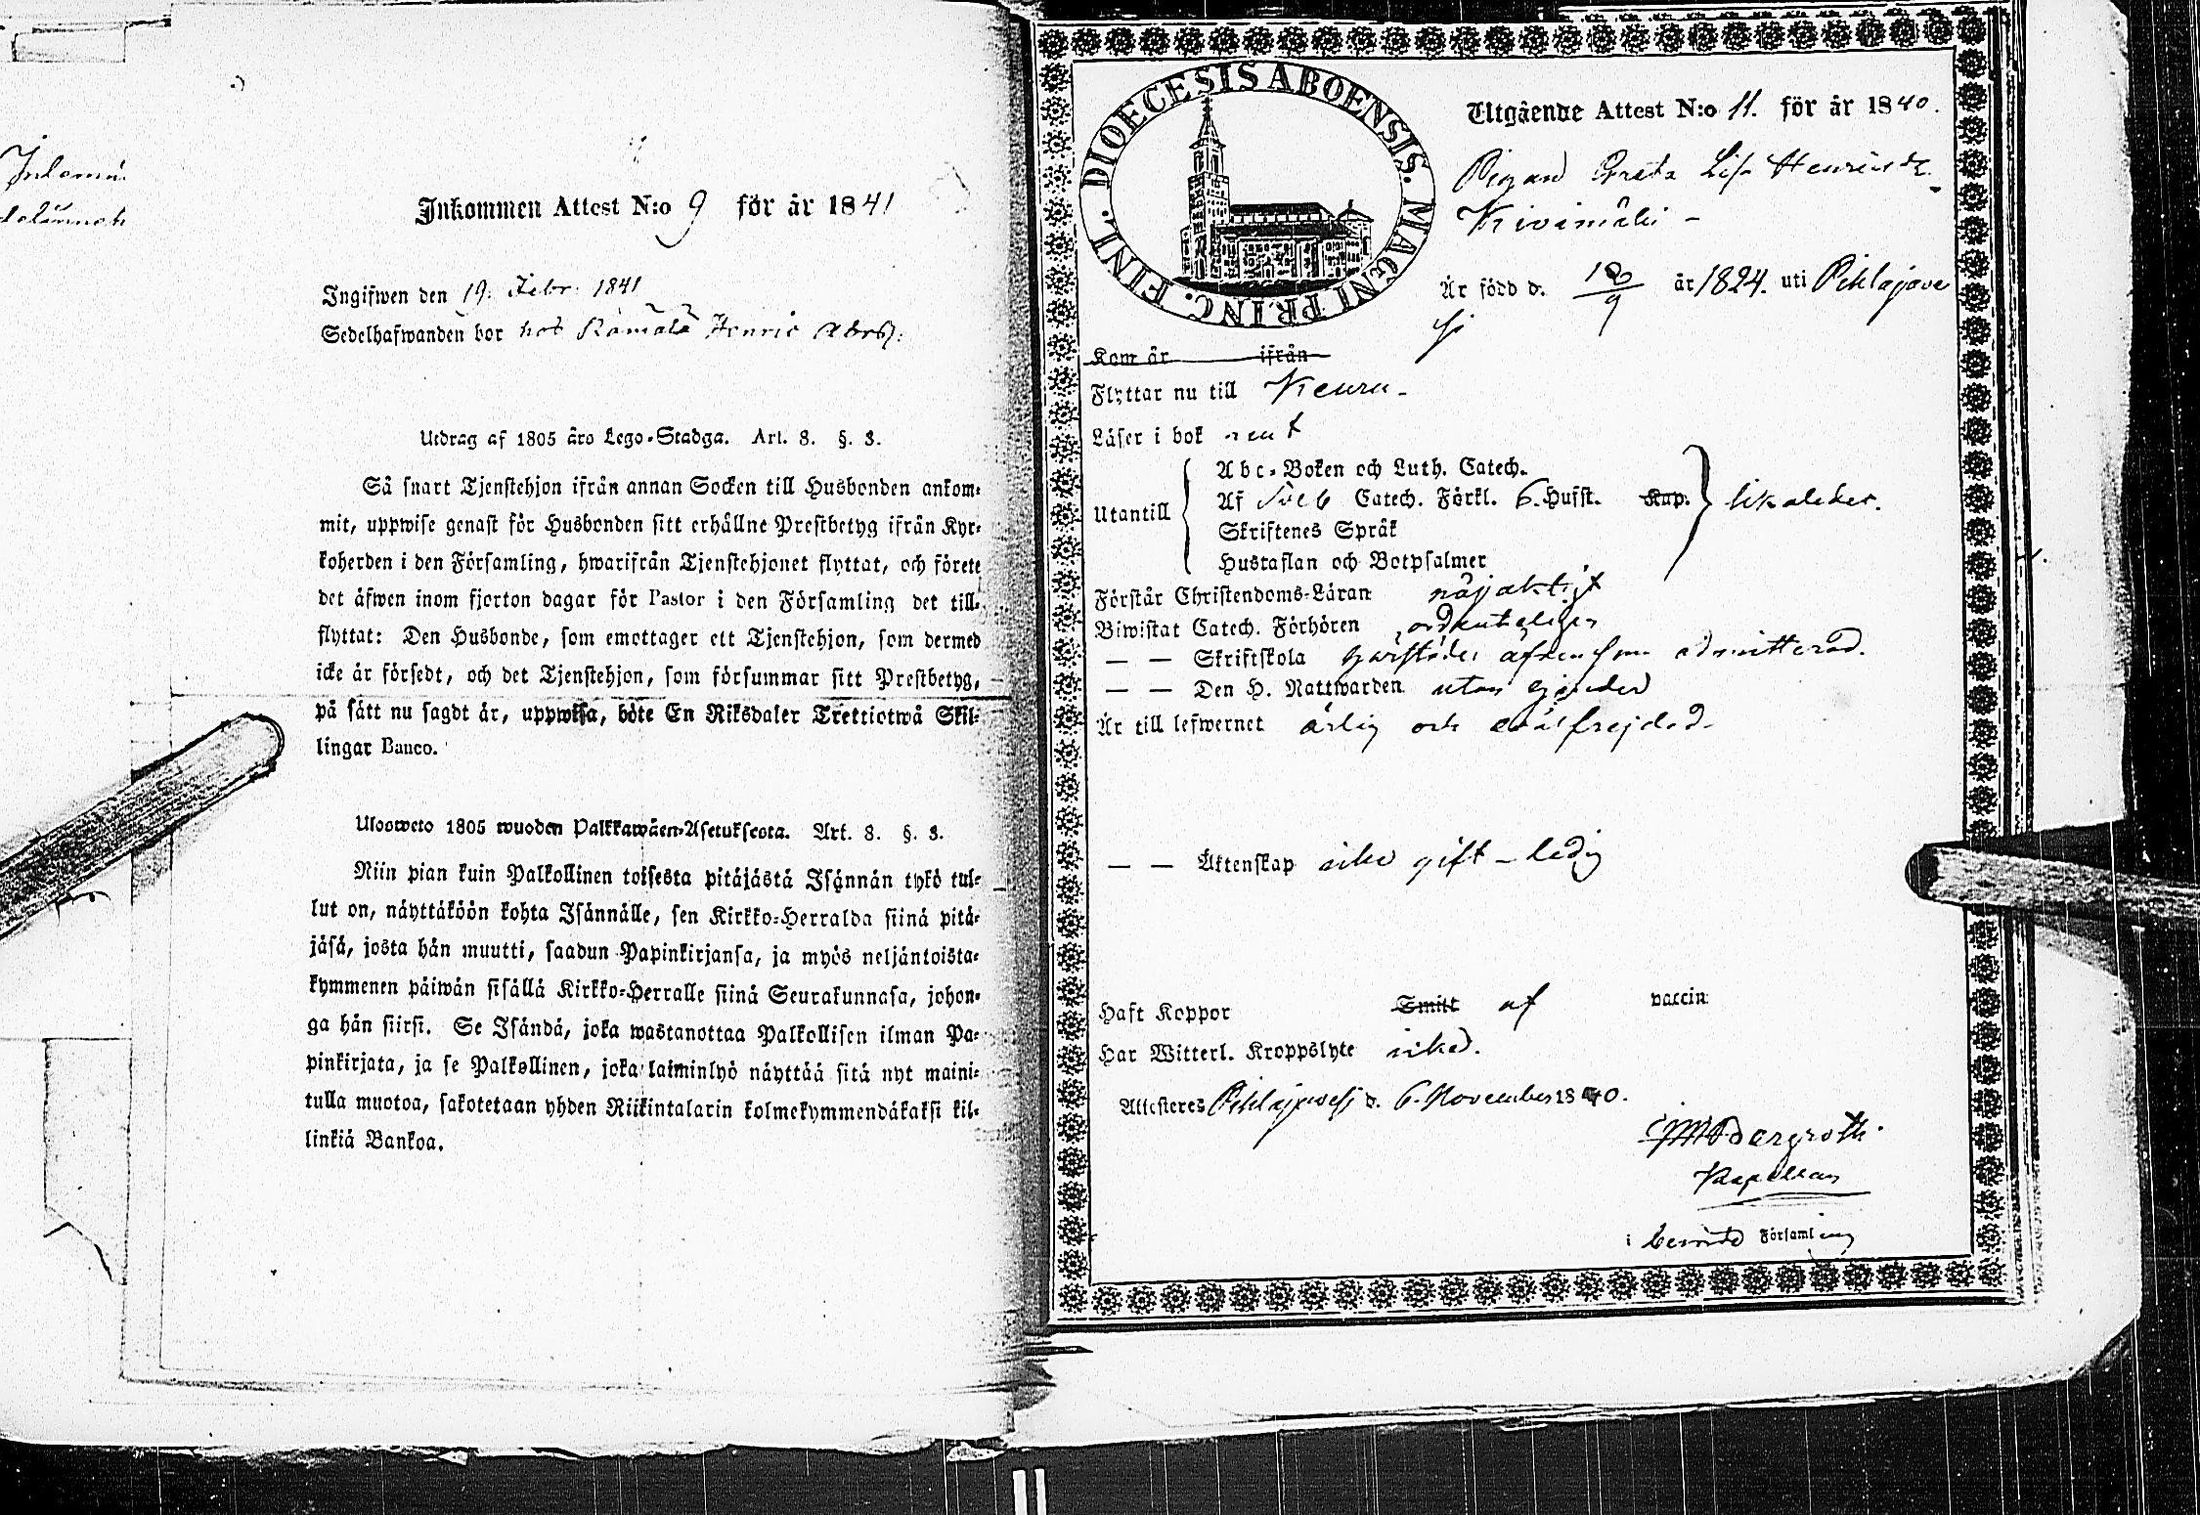 Inkommen Attest N:o 9 för år 1841
Ingifwen den 19. Febr. 1841
Sedelhafwanden bor hos Rämälä Henric Abrsz:
Utdrag af 1805 års Lego-Stadga. Art. 8. §. 3.
Så snart Tjenstehjon ifrån annan Socken till Husbonden ankom-
mit, uppwise genast för Husbonden sitt erhållne Prestbetyg ifrån Kyr-
koherden i den Församling, hwarifrån Tjenstehjonet flyttat, och förete
det äfwen inom fjorton dagar för Pastor i den Församling det till-
flyttat: Den Husbonde, som emottager ett Tjenstehjon, som dermed
icke är försedt, och det Tjenstehjon, som försummar sitt Prestbetyg,
på sätt nu sagdt är, uppwisa, böte En Riksdaler Trettiotwå Skil-
lingar Banco.
Ulosweto 1805 wuoden Palkkawäen-Asetuksesta. Art. 8. §. 3.
Niin pian kuin Palkollinen toisesta pitäjästä Isännän tykö tul-
lut on, näyttäköön kohta Isännälle, sen Kirkko-Herralda siinä pitä-
jäsä, josta hän muutti, saadun Papinkirjansa, ja myös neljäntoista-
kymmenen päiwän sisällä Kirkko-Herralle siinä Seurakunnasa, johon-
ga hän siirsi. Se Isändä, joka wastanottaa Palkollisen ilman Pa-
pinkirjata, ja se Palkollinen, joka laiminlyö näyttää sitä nyt maini-
tulla muotoa, sakotetaan yhden Riikintalarin kolmekymmendäkaksi kil-
linkiä Bankoa.
DIOECESIS ABOENSIS. MAGNI PRINC. FINL.
Utgående Attest N:o 11. för år 1840.
Pigan Greta Lisa Henricsdr.
Kivimäki -
Är född d. 18/9 år 1824. uti Pihlajave
si
Kom år ifrån
Flyttar nu till Keuru -
Läser i bok rent
Utantill
Abc-Boken och Luth. Catech.
Af Sveb Catech. Förkl. 6. Hufst. Kap.
Skriftenes Språk
Hustaflan och Botpsalmer
likaledes.
Förstår Christendoms-Läran nöjaktigt
Biwistat Catech. Förhören ordenteligen
— — Skriftskola admitterad.
— — Den H. Nattwarden utan
Är till lefwernet ärlig och wälfrejdad.
— — Äktenskap icke gift - ledig
Haft Koppor Smitt af vaccin
Har Witterl. Kroppslyte icke.
Attesteres Pihlajavesi d. 6. November 1840.
Bergroth
Kapellan
i bemälde Församling